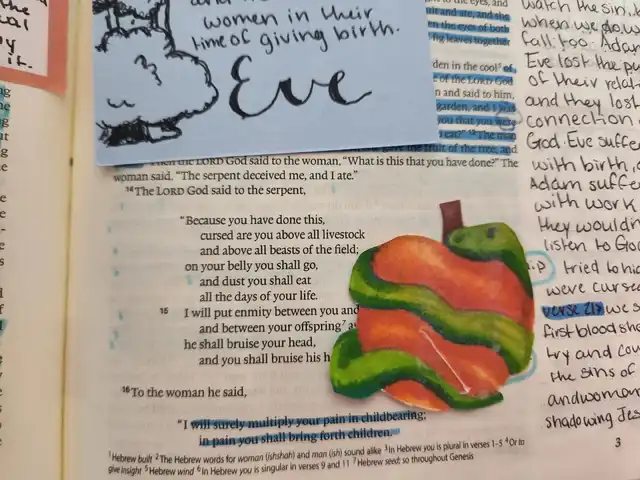 the
cal
y
it.
women in their
time of giving birth.
Eve
nit and ate, and she
en the eyes of both
he leaves together
den in the cool of
e of the LORD God
n and said to him,
garden, and I was
you that you were
eat?" The man
gave me fruit of the tree, and
Then the LORD God said to the woman, "What is this that you have done?" The
woman said, "The serpent deceived me, and I ate."
14 The LORD God said to the serpent,
"Because you have done this,
cursed are you above all livestock
and above all beasts of the field;
on your belly you shall go,
and dust you shall eat
all the days of your life.
15 I will put enmity between you and
and between your offspring7 a
he shall bruise your head,
and you shall bruise his h
16 To the woman he said,
"I will surely multiply your pain in childbearing;
in pain you shall bring forth children.
1 Hebrew built 2 The Hebrew words for woman (ishshah) and man (ish) sound alike 3 In Hebrew you is plural in verses 1-5 4 Or to
give insight 5 Hebrew wind 6 In Hebrew you is singular in verses 9 and 11 7 Hebrew seed; so throughout Genesis
watch the sin.
when we do, w
fall too. Adam
Eve lost the pu
of their relati
and they lost
connection
God. Eve suffe
with birth,
Adam suffe
with work
they wouldn
listen to God
tried to hid
were curse
verse 21 we s
first blood she
try and cov
the sins of
and woman
shadowing Jes
3